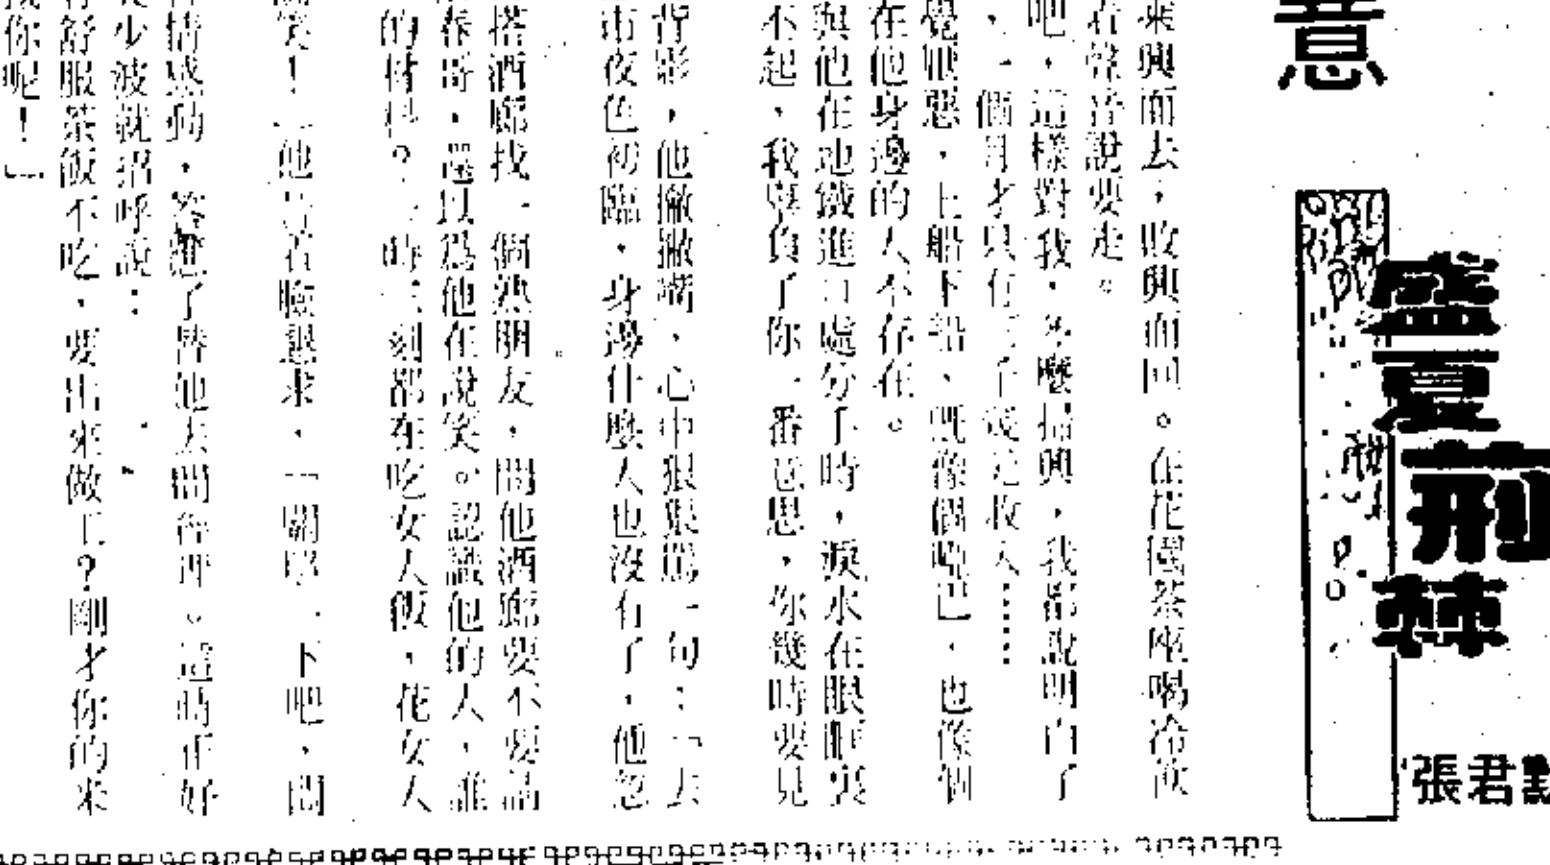 意
盛夏荊棘
張君
乘興而去，敗興而回。在花園茶座喝冷飲
着聲音說要走。
吧，這樣對我，多麼掃興，我都說明白了
、一個月才只有三千幾元收入……
覺厭惡，上船下船，既像個啞巴，也像個
在他身邊的人不存在。
與他在地鐵進口處分手時，淚水在眼眶裏
不起，我辜負了你一番意思，你幾時要見
背影，他撇撇嘴，心中狠狠罵一句：「去
市夜色初臨，身邊什麼人也沒有了，他忽
搭酒廊找一個熟朋友，問他酒廊要不要請
春哥，還以爲他在說笑。認識他的人，誰
的材料？一時三刻都在吃女人飯，花女人
笑！」他 着臉懇求，「關照一下吧，問
情感動，答應了替他去問經理。這時正好
少波就招呼說：
舒服茶飯不吃，要出來做工？剛才你的來
我你呢！」